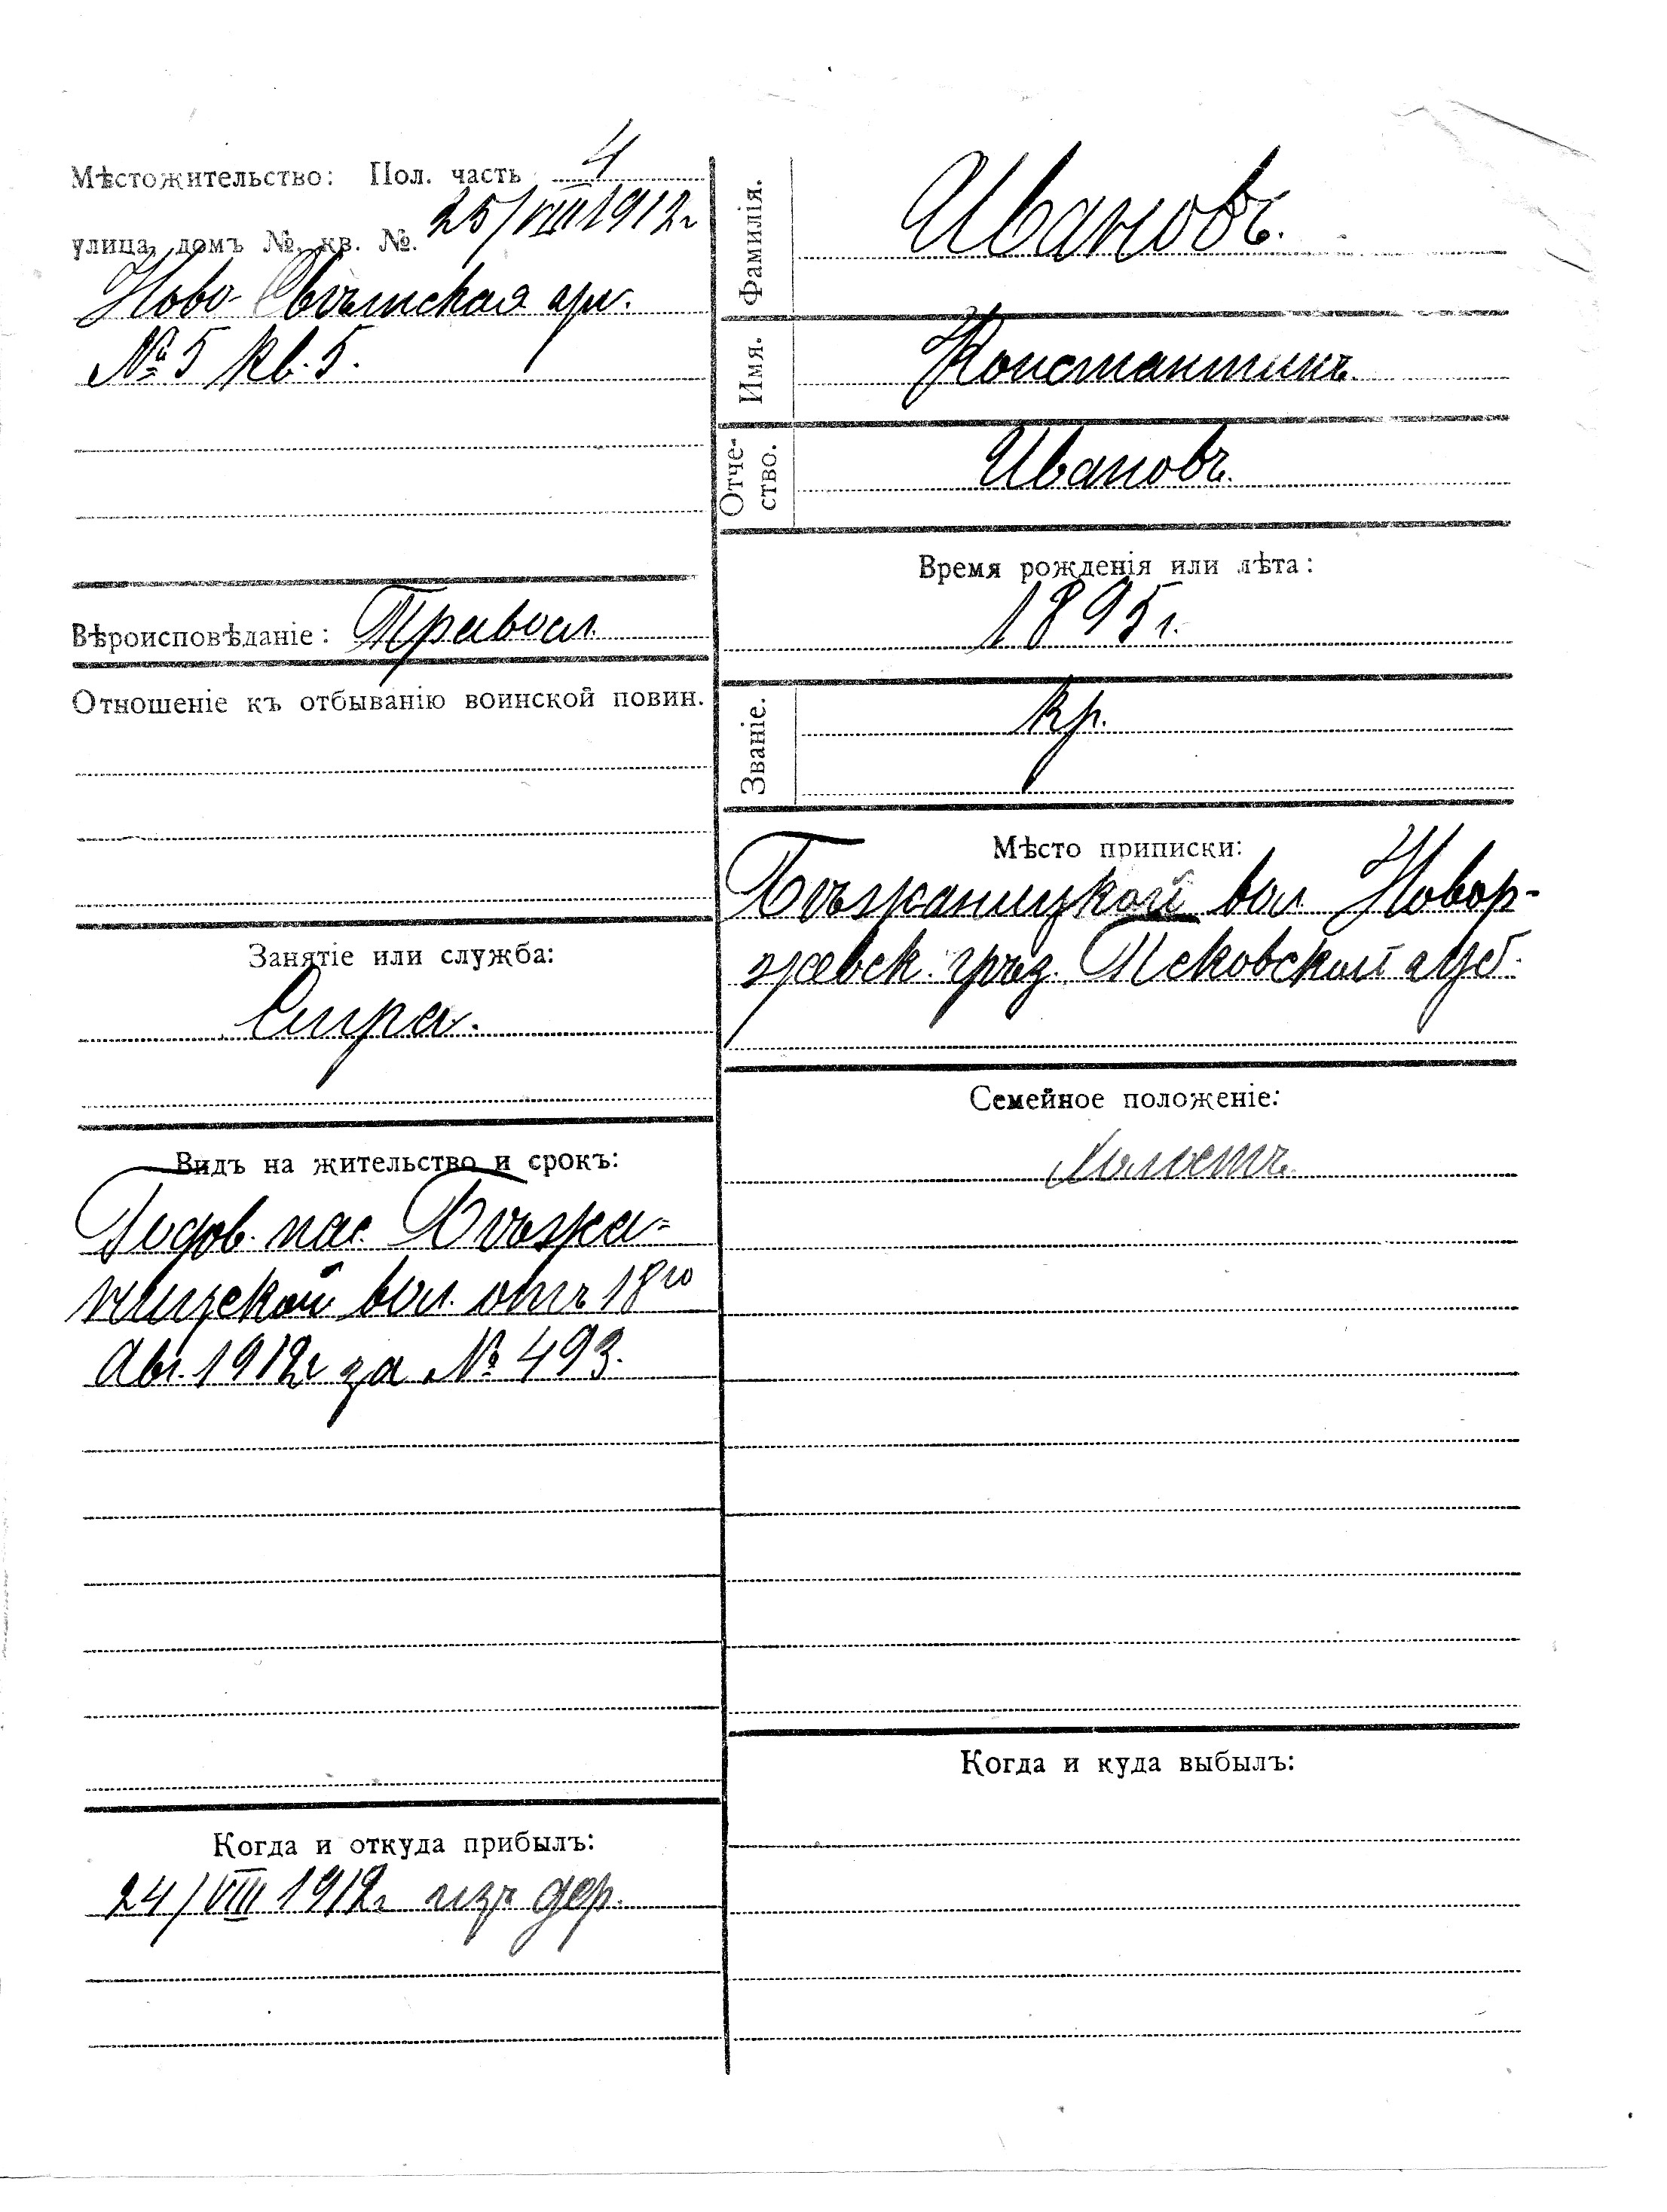 Мѣстожительство: Пол. часть 4
25/VIII 1912 г
улица, домъ №. кв. №.
Ново-Свѣтская ул.
№ 5 кв. 5.
Вѣроисповѣданіе: Правосл
Отношеніе къ отбыванію воинской повин.
Занятіе или служба:
Видъ на жительство и срокъ:
Годов. пас Бѣжа-
ницкой вол. отъ 18го
Авг. 1912 г за № 493.
Когда и откуда прибылъ:
24/VIII 1912 г изъ дер.
Фамилія.
Ивановъ.
Имя.
Константинъ.
Отче-
ство.
Ивановъ.
Время рожденія или лѣта:
1895 г.
Званіе.
кр.
Мѣсто приписки:
Бѣжаницкой вол Новор-
жевск. уѣз. Псковской губ.
Семейное положеніе:
Холостъ.
Когда и куда выбылъ: